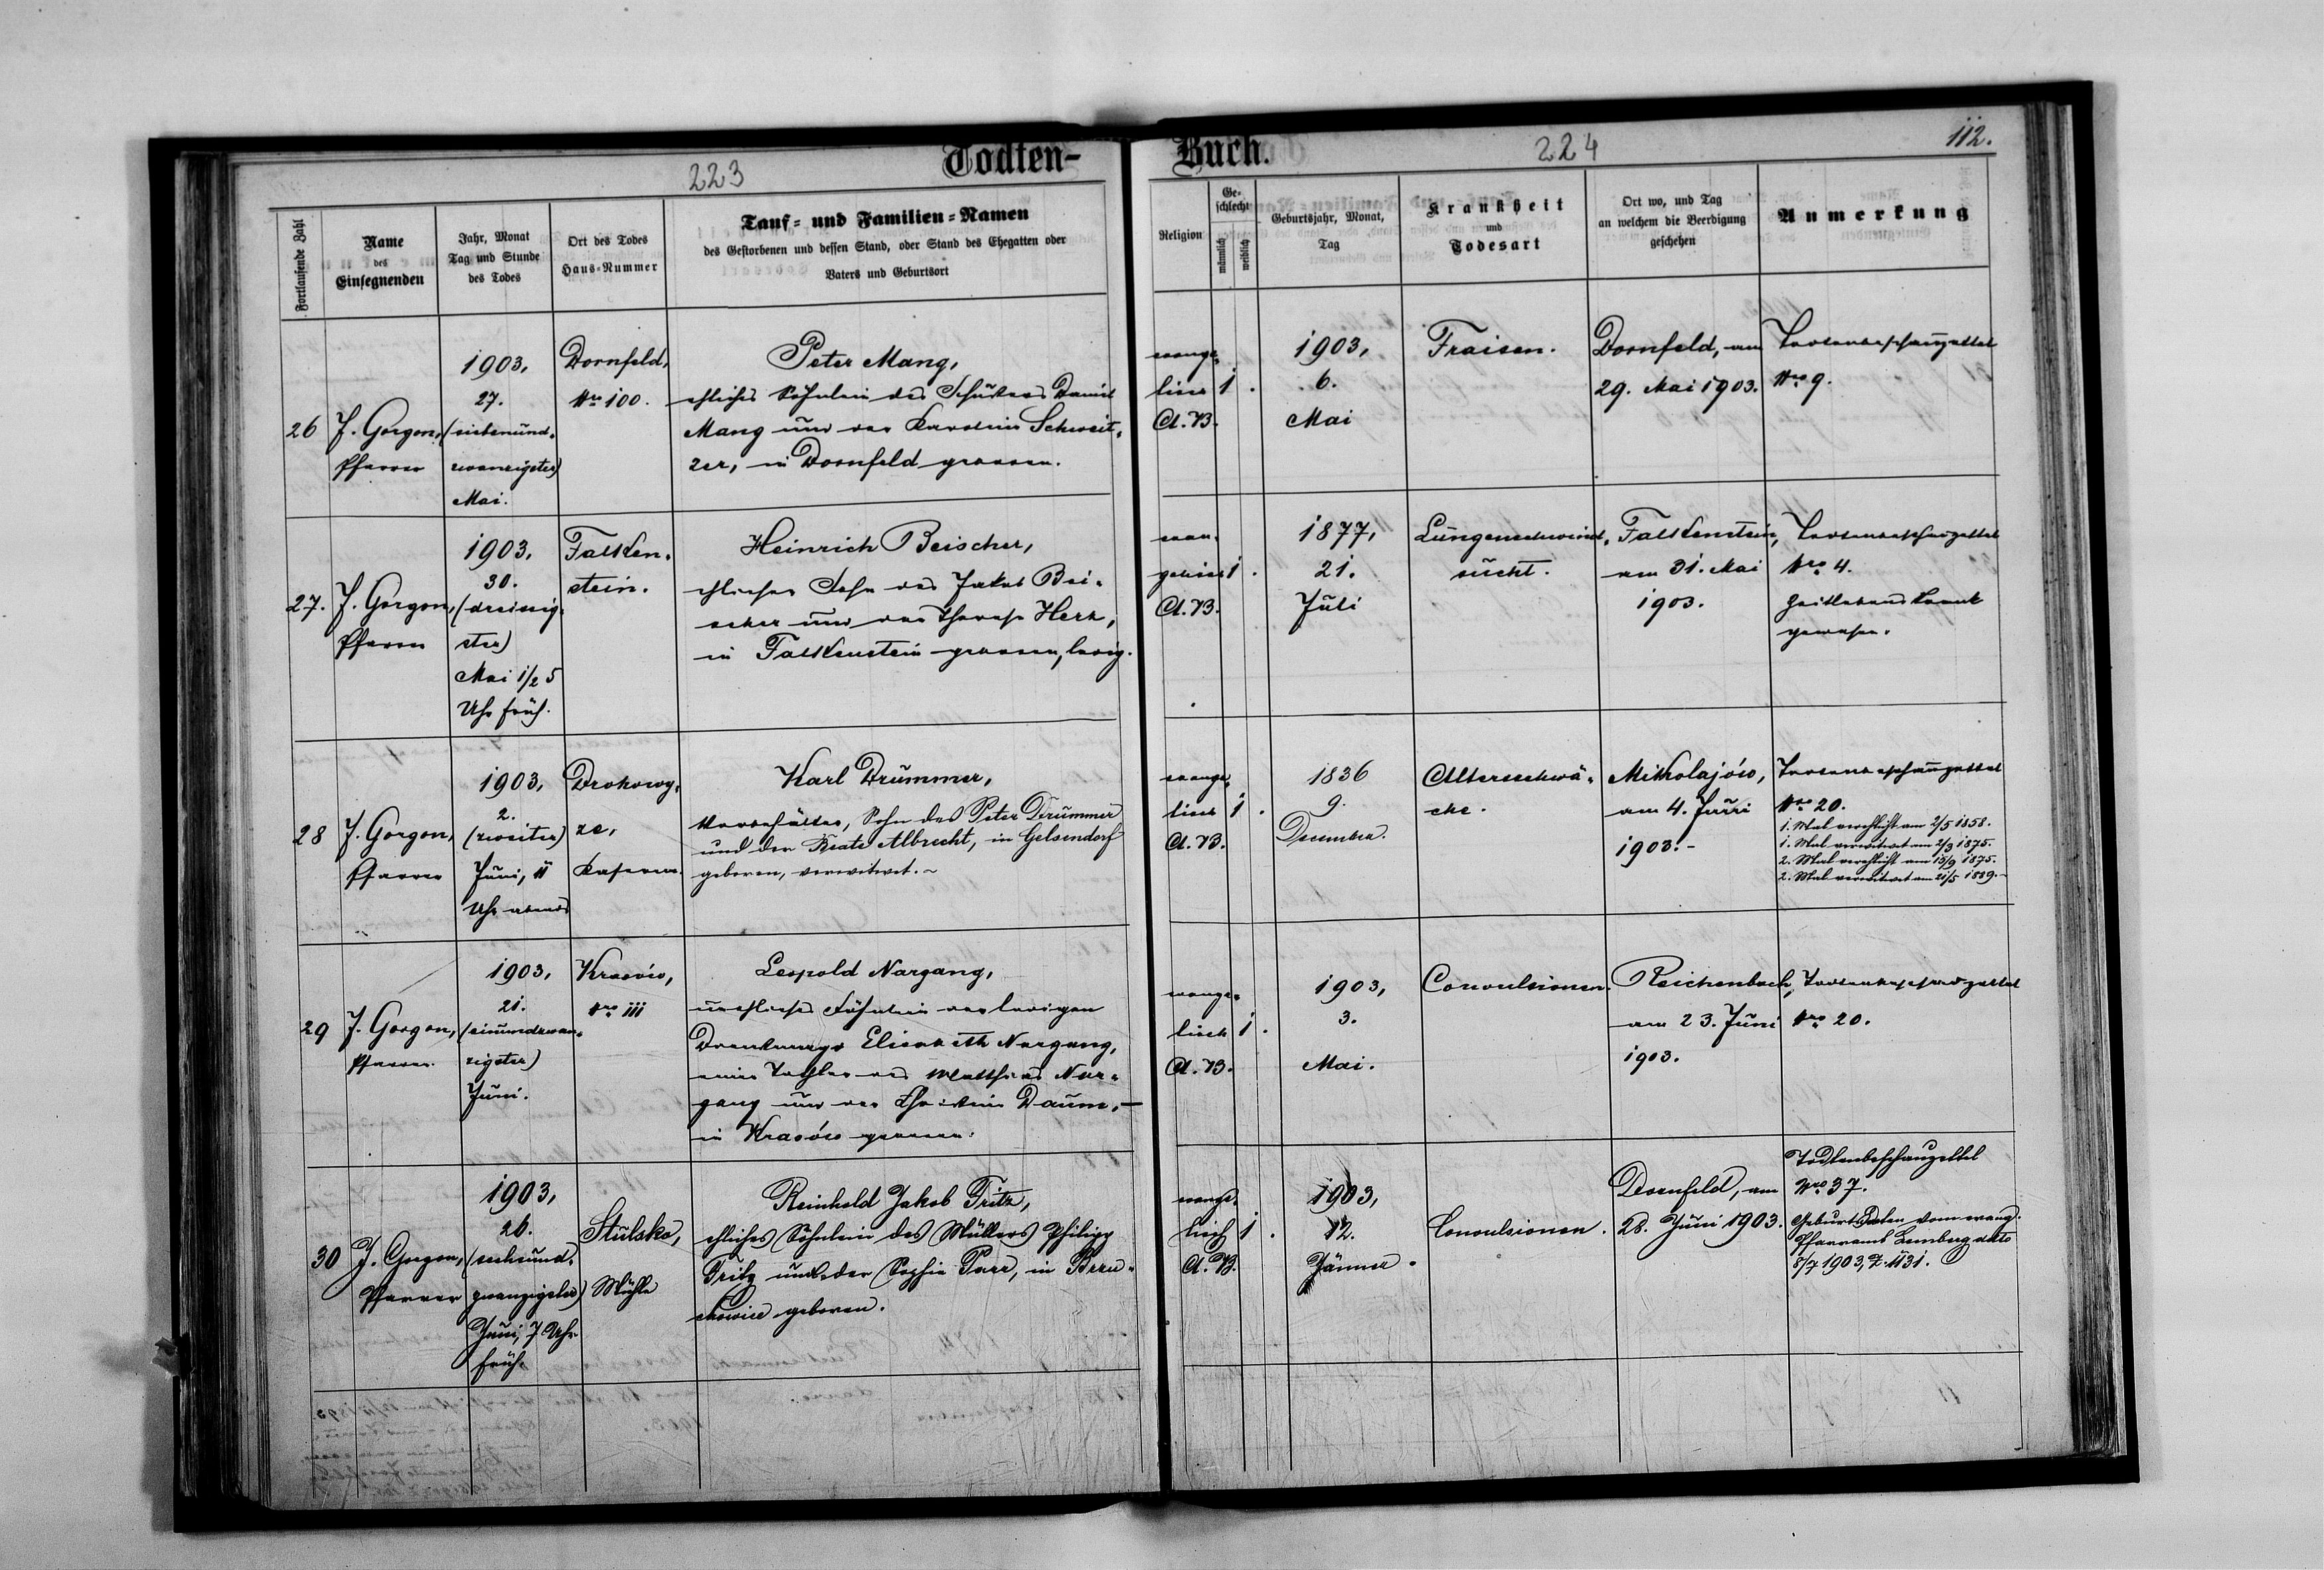 223
Todten-
Buch.
224
112.
Fortlaufende Zahl
Name
des
Einsegnenden
Jahr, Monat
Tag und Stunde
des Todes
Ort des Todes
Haus-Nummer
Tauf- und Familien-Namen
des Gestorbenen und dessen Stand, oder Stand des Ehegatten oder
Vaters und Geburtsort
Religion
Ge-
schlecht
männlich
weiblich
Geburtsjahr, Monat,
Tag
Krankheit
und
Todesart
Ort wo, und Tag
an welchem die Beerdigung
geschehen
Anmerkung
26
J. Gorgon,
Pfarrer
1903,
27.
(siebenund-
zwanzigster)
Mai.
Dornfeld,
Nro 100.
Peter Mang,
eheliches Söhnlein des Schusters Daniel
Mang und der Karolina Schweit-
zer, in Dornfeld geboren.
evange-
lisch
A. B.
1
1903,
6.
Mai
Fraisen.
Dornfeld, am
29. Mai 1903.
Todtenbeschauzettel
Nro 9.
27.
J. Gorgon,
Pfarrer
1903,
30.
(dreissig-
ster)
Mai 1/2 5
Uhr früh.
Falken-
stein.
Heinrich Beischer,
ehelicher Sohn des Jakob Bei-
scher und der Therese Herz,
in Falkenstein geboren, ledig.
evan-
gelisch
A. B.
1
1877,
21.
Juli
Lungenschwind-
sucht.
Falkenstein,
am 31. Mai
1903.
Todtenbeschauzettel
Nro 4.
Zeitlebens krank
gewesen.
28
J. Gorgon,
Pfarrer
1903,
2.
(zweiter)
Juni, 11
Uhr abends
Drohowy-
ze,
Kaserne.
Karl Drummer,
Vorbehälter, Sohn des Peter Drummer
und der Beate Albrecht, in Gelsendorf
geboren, verwitwet.
evange-
lisch
A. B.
1
1836
9.
December.
Altersschwä-
che.
Mikolajów,
am 4. Juni
1903.-
Todtenbeschauzettel
Nro 20.
1. Mal verehlicht am 2/5 1858.
1. Mal verwitwet am 2/3 1875.
2. Mal verehlicht am 13/9 1875.
2. Mal verwitwet am 21/5 1889.
29
J. Gorgon,
Pfarrer.
1903,
21.
(einundzwan-
zigster)
Juni.
Krasów,
Nro 111
Leopold Nargang,
uneheliches Söhnlein der ledigen
Elisabeth Nargang,
einer Tochter des Matthias Nar-
gang und der Christine Daum,
in Krasów geboren.
evange-
lisch
A. B.
1
1903,
3.
Mai.
Convulsionen.
Reichenbach,
am 23. Juni
1903.
Todtenbeschauzettel
Nro 20.
30
J. Gorgon,
Pfarrer
1903,
26.
(sechsund-
zwanzigster)
Juni, 7 Uhr
früh.
Stulsko,
Mühle
Reinhold Jakob Fritz,
eheliches Söhnlein des Müllers Philipp
Fritz und der Sophie Parr, in Brzu-
chowice geboren.
evange-
lisch
A. B.
1
1903,
12.
Jänner.
Convulsionen.
Dornfeld, am
28. Juni 1903.
Todtenbeschauzettel
Nro 37.
Geburtsdaten vom evang.
Pfarramt Lemberg dato
8/7 1903, Z. 1131.